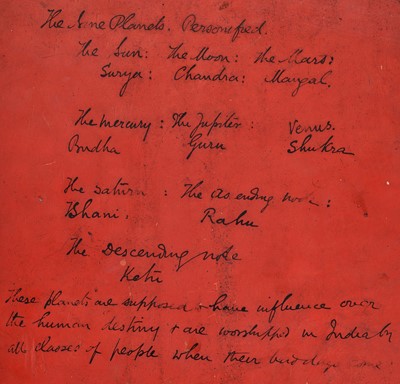 The Nine Planets. Personified.
The Sun: The Moon: The Mars:
Surya: Chandra: Mangal.
The Mercury: The Jupiter: Venus.
Budha Guru Shukra
The Saturn: The As ending node:
Shani. Rahu
The Descending node
Ketu
These planets are supposed to have influence over
the human destiny & are worshipped in India by
all classes of people when their